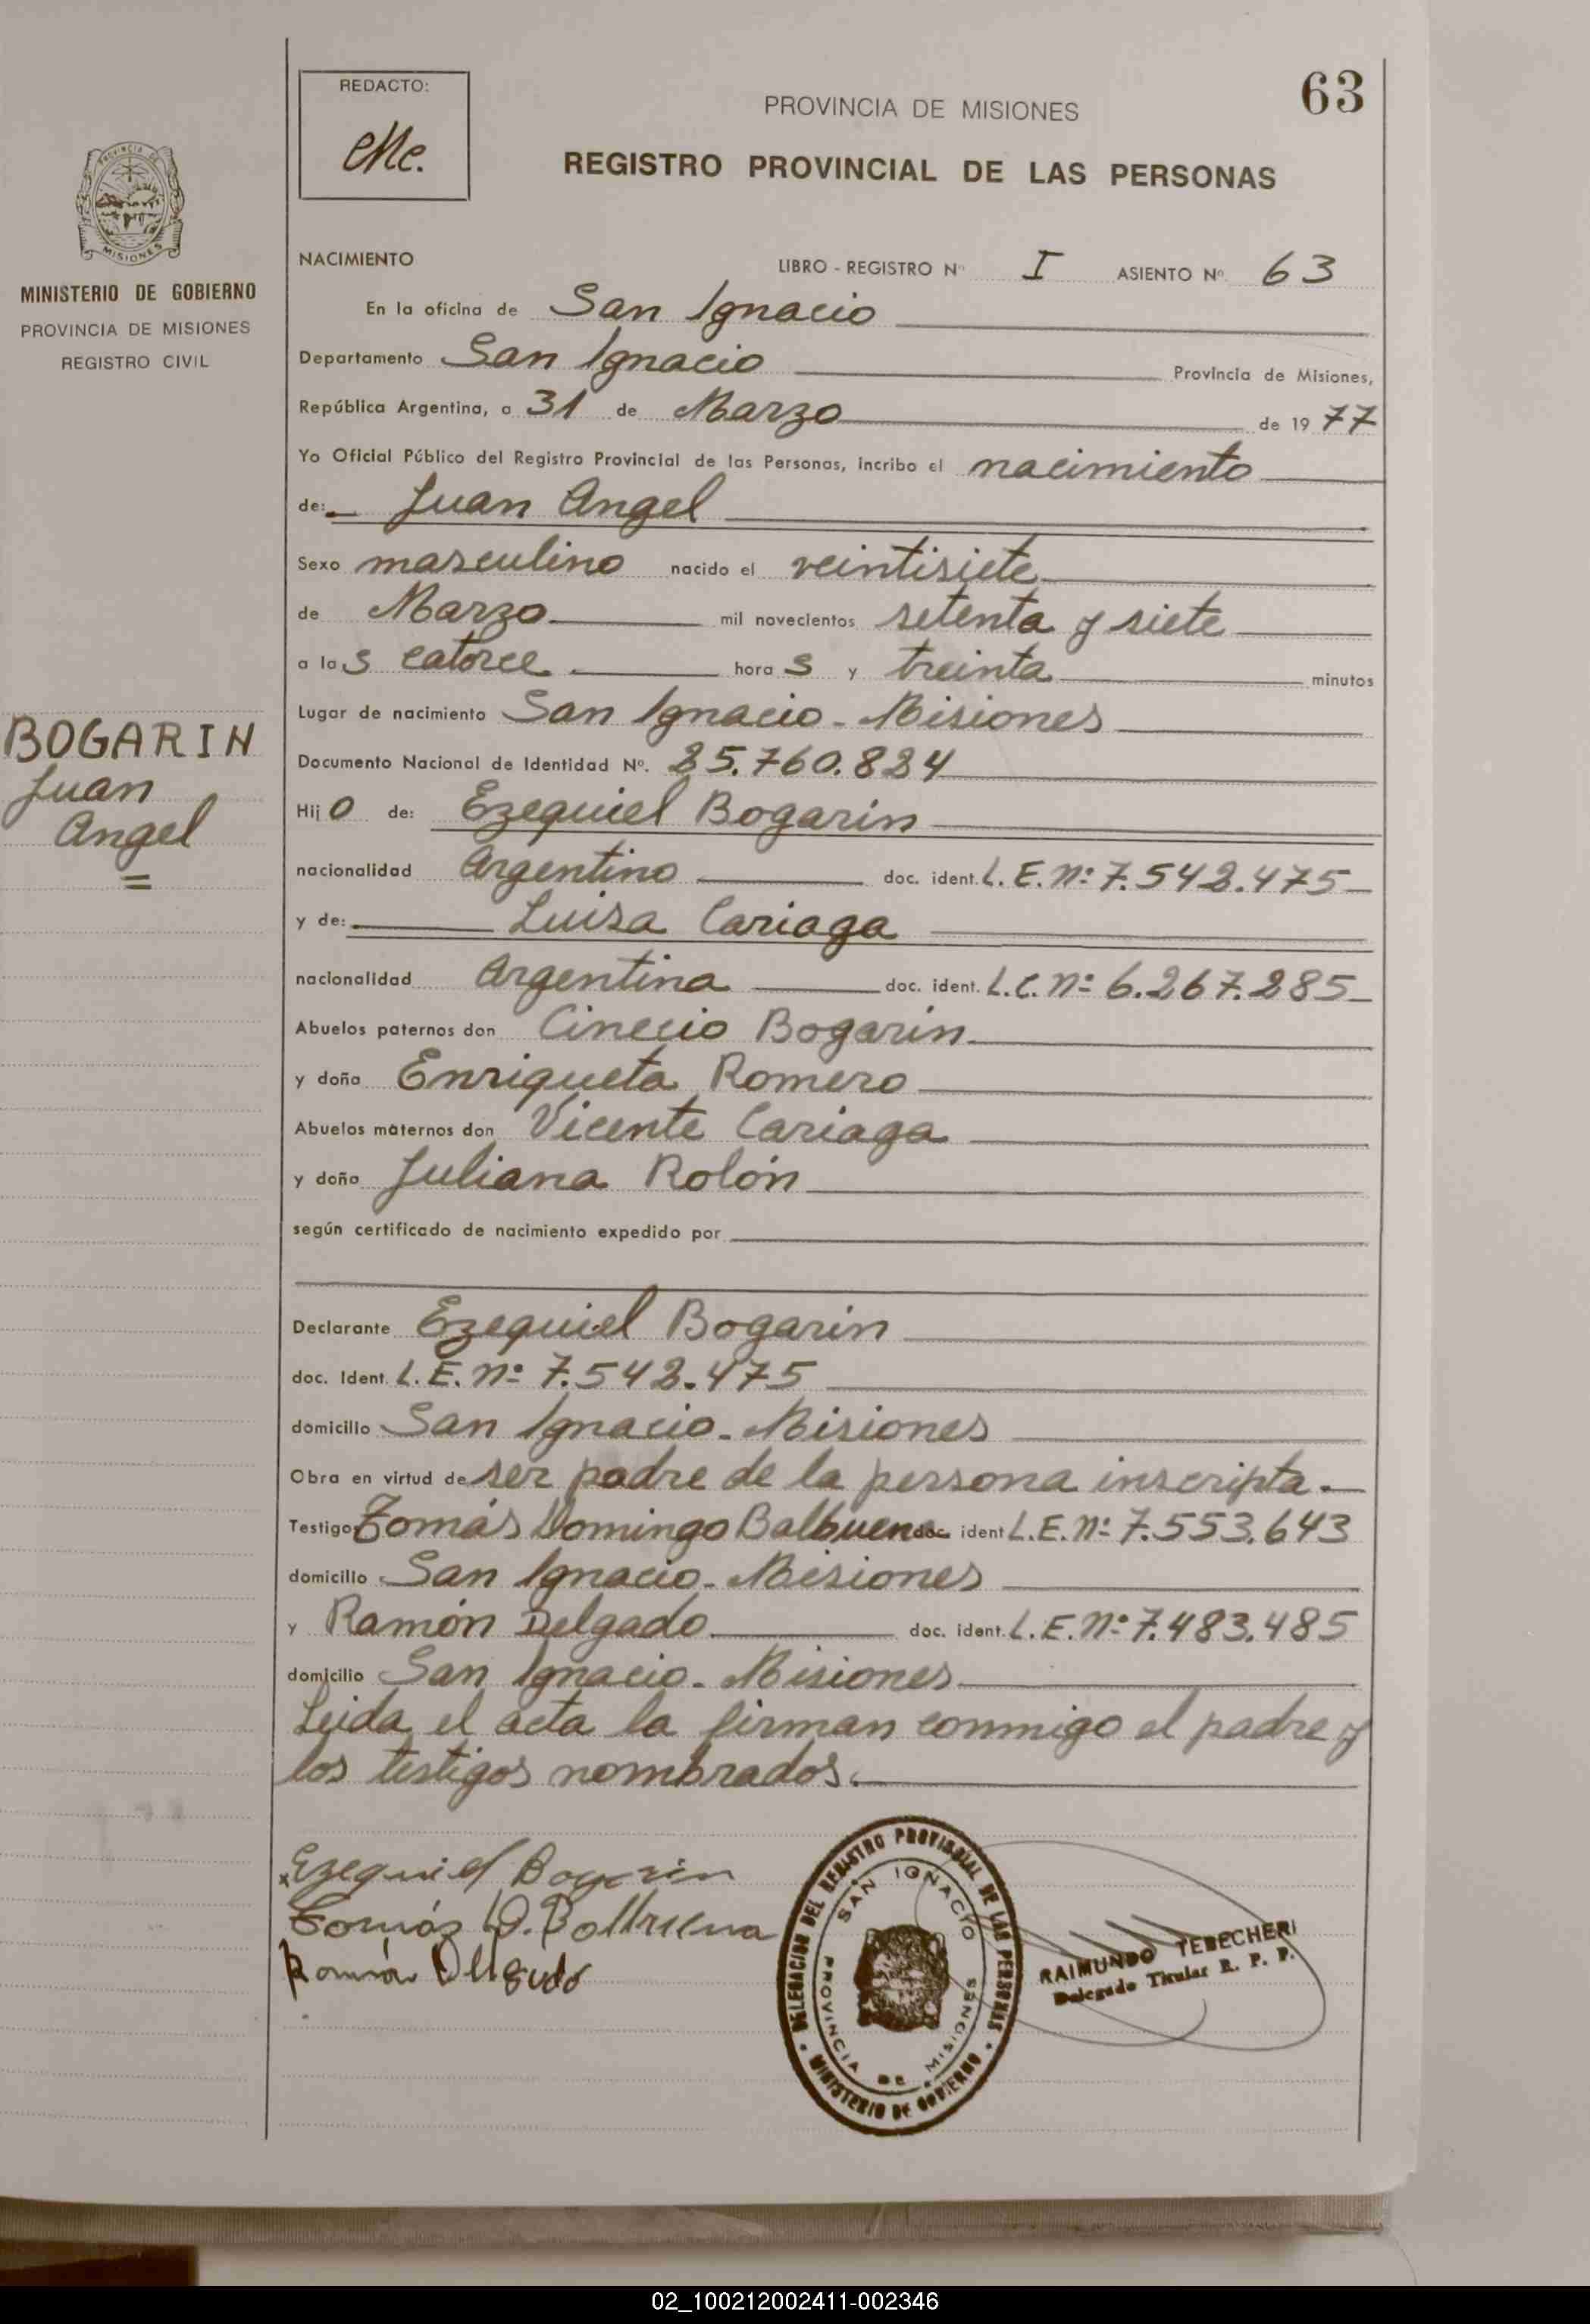 REDACTO:
PROVINCIA DE MISIONES
63
REGISTRO PROVINCIAL DE LAS PERSONAS
PROVINCIA DE
MISIONES
MINISTERIO DE GOBIERNO
PROVINCIA DE MISIONES
REGISTRO CIVIL
BOGARIN
Juan
Angel
=
NACIMIENTO LIBRO - REGISTRO Nº I ASIENTO Nº 63
En la oficina de San Ignacio
Departamento San Ignacio Provincia de Misiones,
República Argentina, a 31 de Marzo de 1977
Yo Oficial Público del Registro Provincial de las Personas, incribo el nacimiento
de: Juan Angel
Sexo masculino nacido el veintisiete
de Marzo mil novecientos setenta y siete
a las catorce horas y treinta minutos
Lugar de nacimiento San Ignacio - Misiones
Documento Nacional de Identidad Nº. 25.760.824
Hijo de: Ezequiel Bogarín
nacionalidad Argentino doc. ident. L.E. Nº 7.542.475
y de: Luisa Cariaga
nacionalidad Argentina doc. ident. L.C. Nº 6.267.285
Abuelos paternos don Cinecio Bogarín
y doña Enriqueta Romero
Abuelos maternos don Vicente Cariaga
y doña Juliana Rolón
según certificado de nacimiento expedido por
Declarante Ezequiel Bogarín
doc. Ident. L.E. Nº 7.542.475
domicilio San Ignacio - Misiones
Obra en virtud de ser padre de la persona inscripta.
Testigos Tomás Domingo Balbuena doc. ident L.E. Nº 7.553.643
domicilio San Ignacio - Misiones
y Ramón Delgado doc. ident. L.E. Nº 7.483.485
domicilio San Ignacio - Misiones
Leida el acta la firman conmigo el padre y
los testigos nombrados.
Ezequiel Bogarin
Tomás D. Balbuena
Ramón Delgado
DELEGACION DEL REGISTRO PROVINCIAL DE LAS PERSONAS
MINISTERIO DE GOBIERNO
SAN IGNACIO
PROVINCIA DE MISIONES
RAIMUNDO TEBECHERI
Delegado Titular R. P. P.
02_100212002411-002346